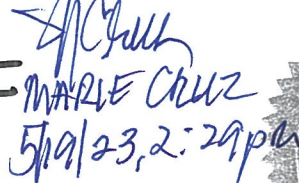 MARIE CRUZ
5/19/23, 2:29pm